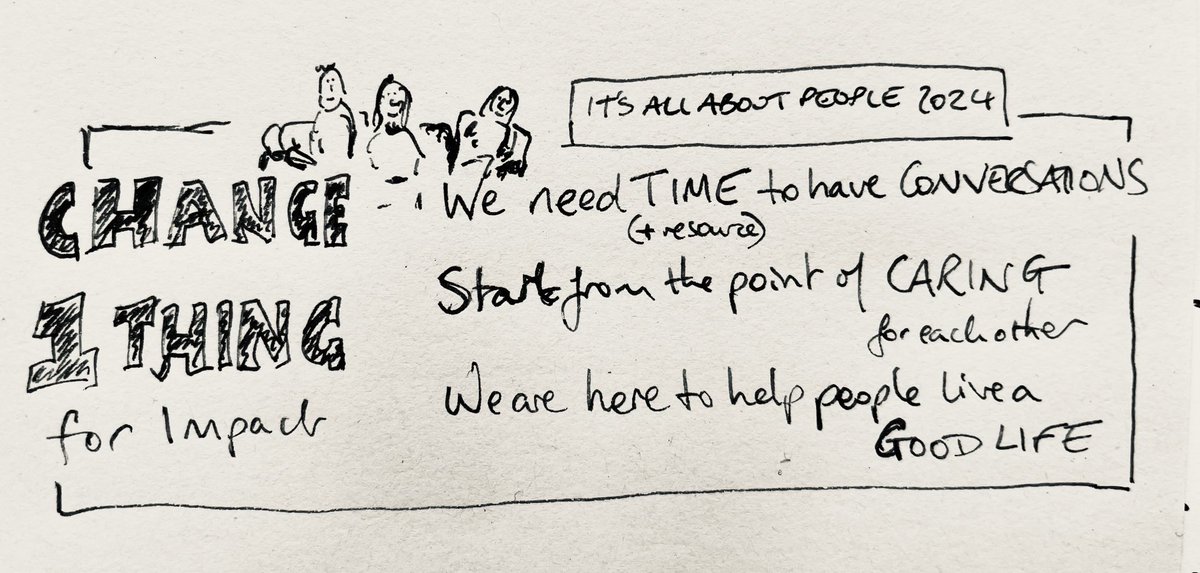 IT'S ALL ABOUT PEOPLE 2024
CHANGE
1 THING
for Impact
We need TIME to have CONVERSATIONS
(+ resource)
Start from the point of CARING
for each other
We are here to help people live a
GOOD LIFE